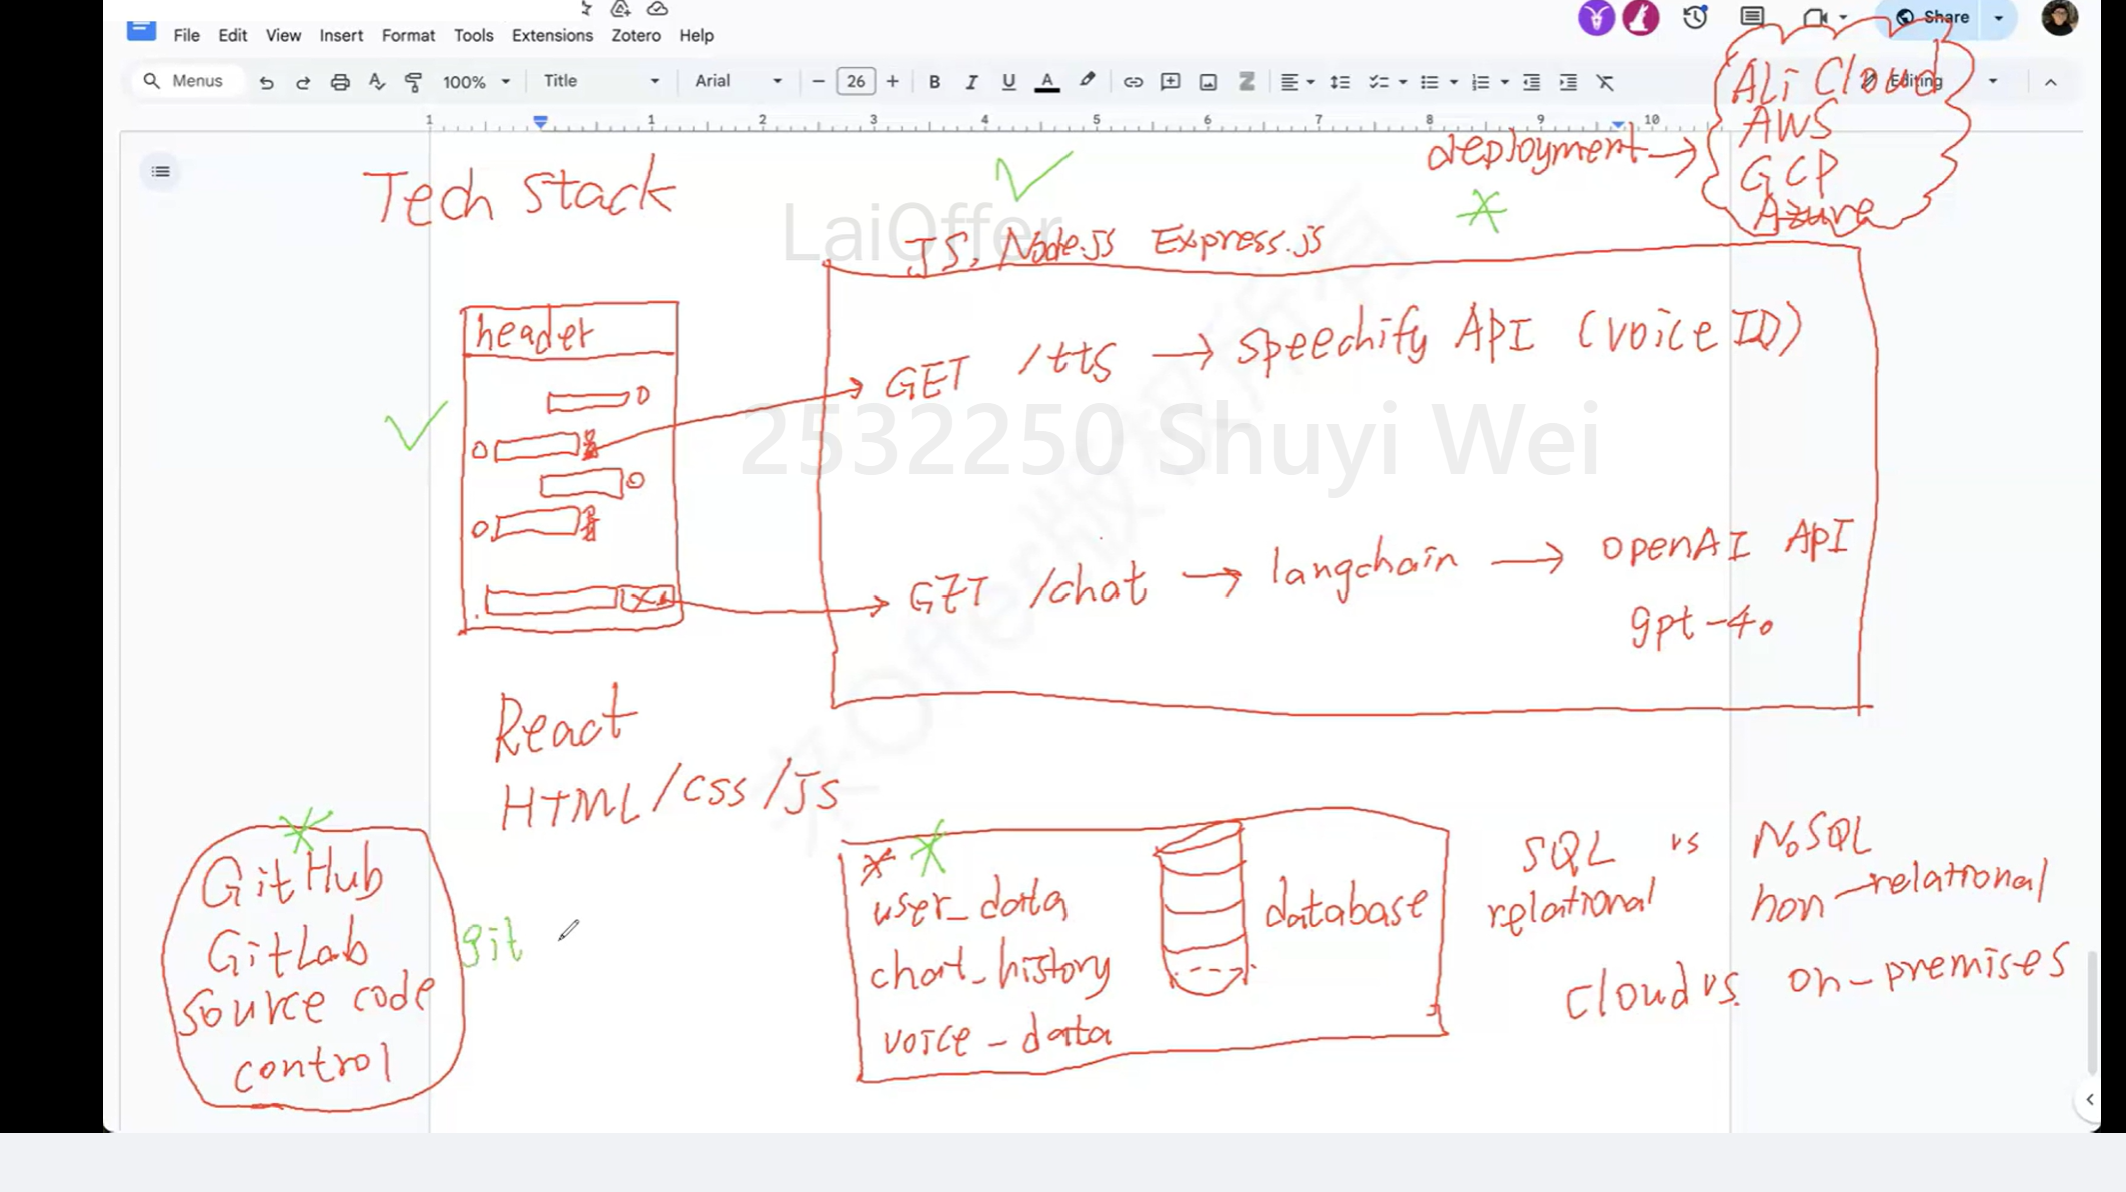 File Edit View Insert Format Tools Extensions Zotero Help
Share
Menus 100% Title Arial 26 B I U A Editing
1 1 2 3 4 5 6 7 8 9 10
Ali Cloud
AWS
GCP
Azure
deployment
Tech Stack
LaiOffer
JS, Node.js Express.js
header
GET /tts → speechify API (voice ID)
2532250 Shuyi Wei
GET /chat → langchain → openAI API
gpt-4o
来Offer版权所有
React
HTML/CSS/JS
GitHub
GitLab
source code
control
git
user_data
chat_history
voice_data
database
SQL vs NoSQL
relational non-relational
cloud vs. on-premises